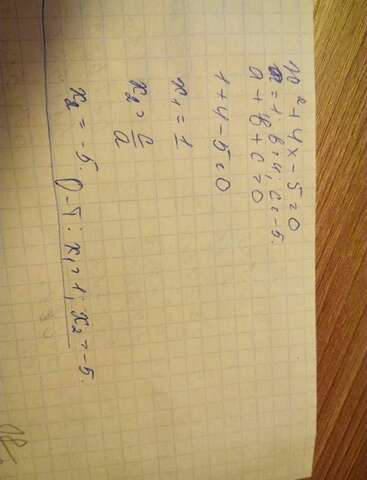 x² + 4x - 5 = 0
a = 1, b = 4; c = -5.
a + b + c = 0
1 + 4 - 5 = 0
x₁ = 1
x₂ = c/a
x₂ = -5. O-т: x₁ = 1; x₂ = -5.